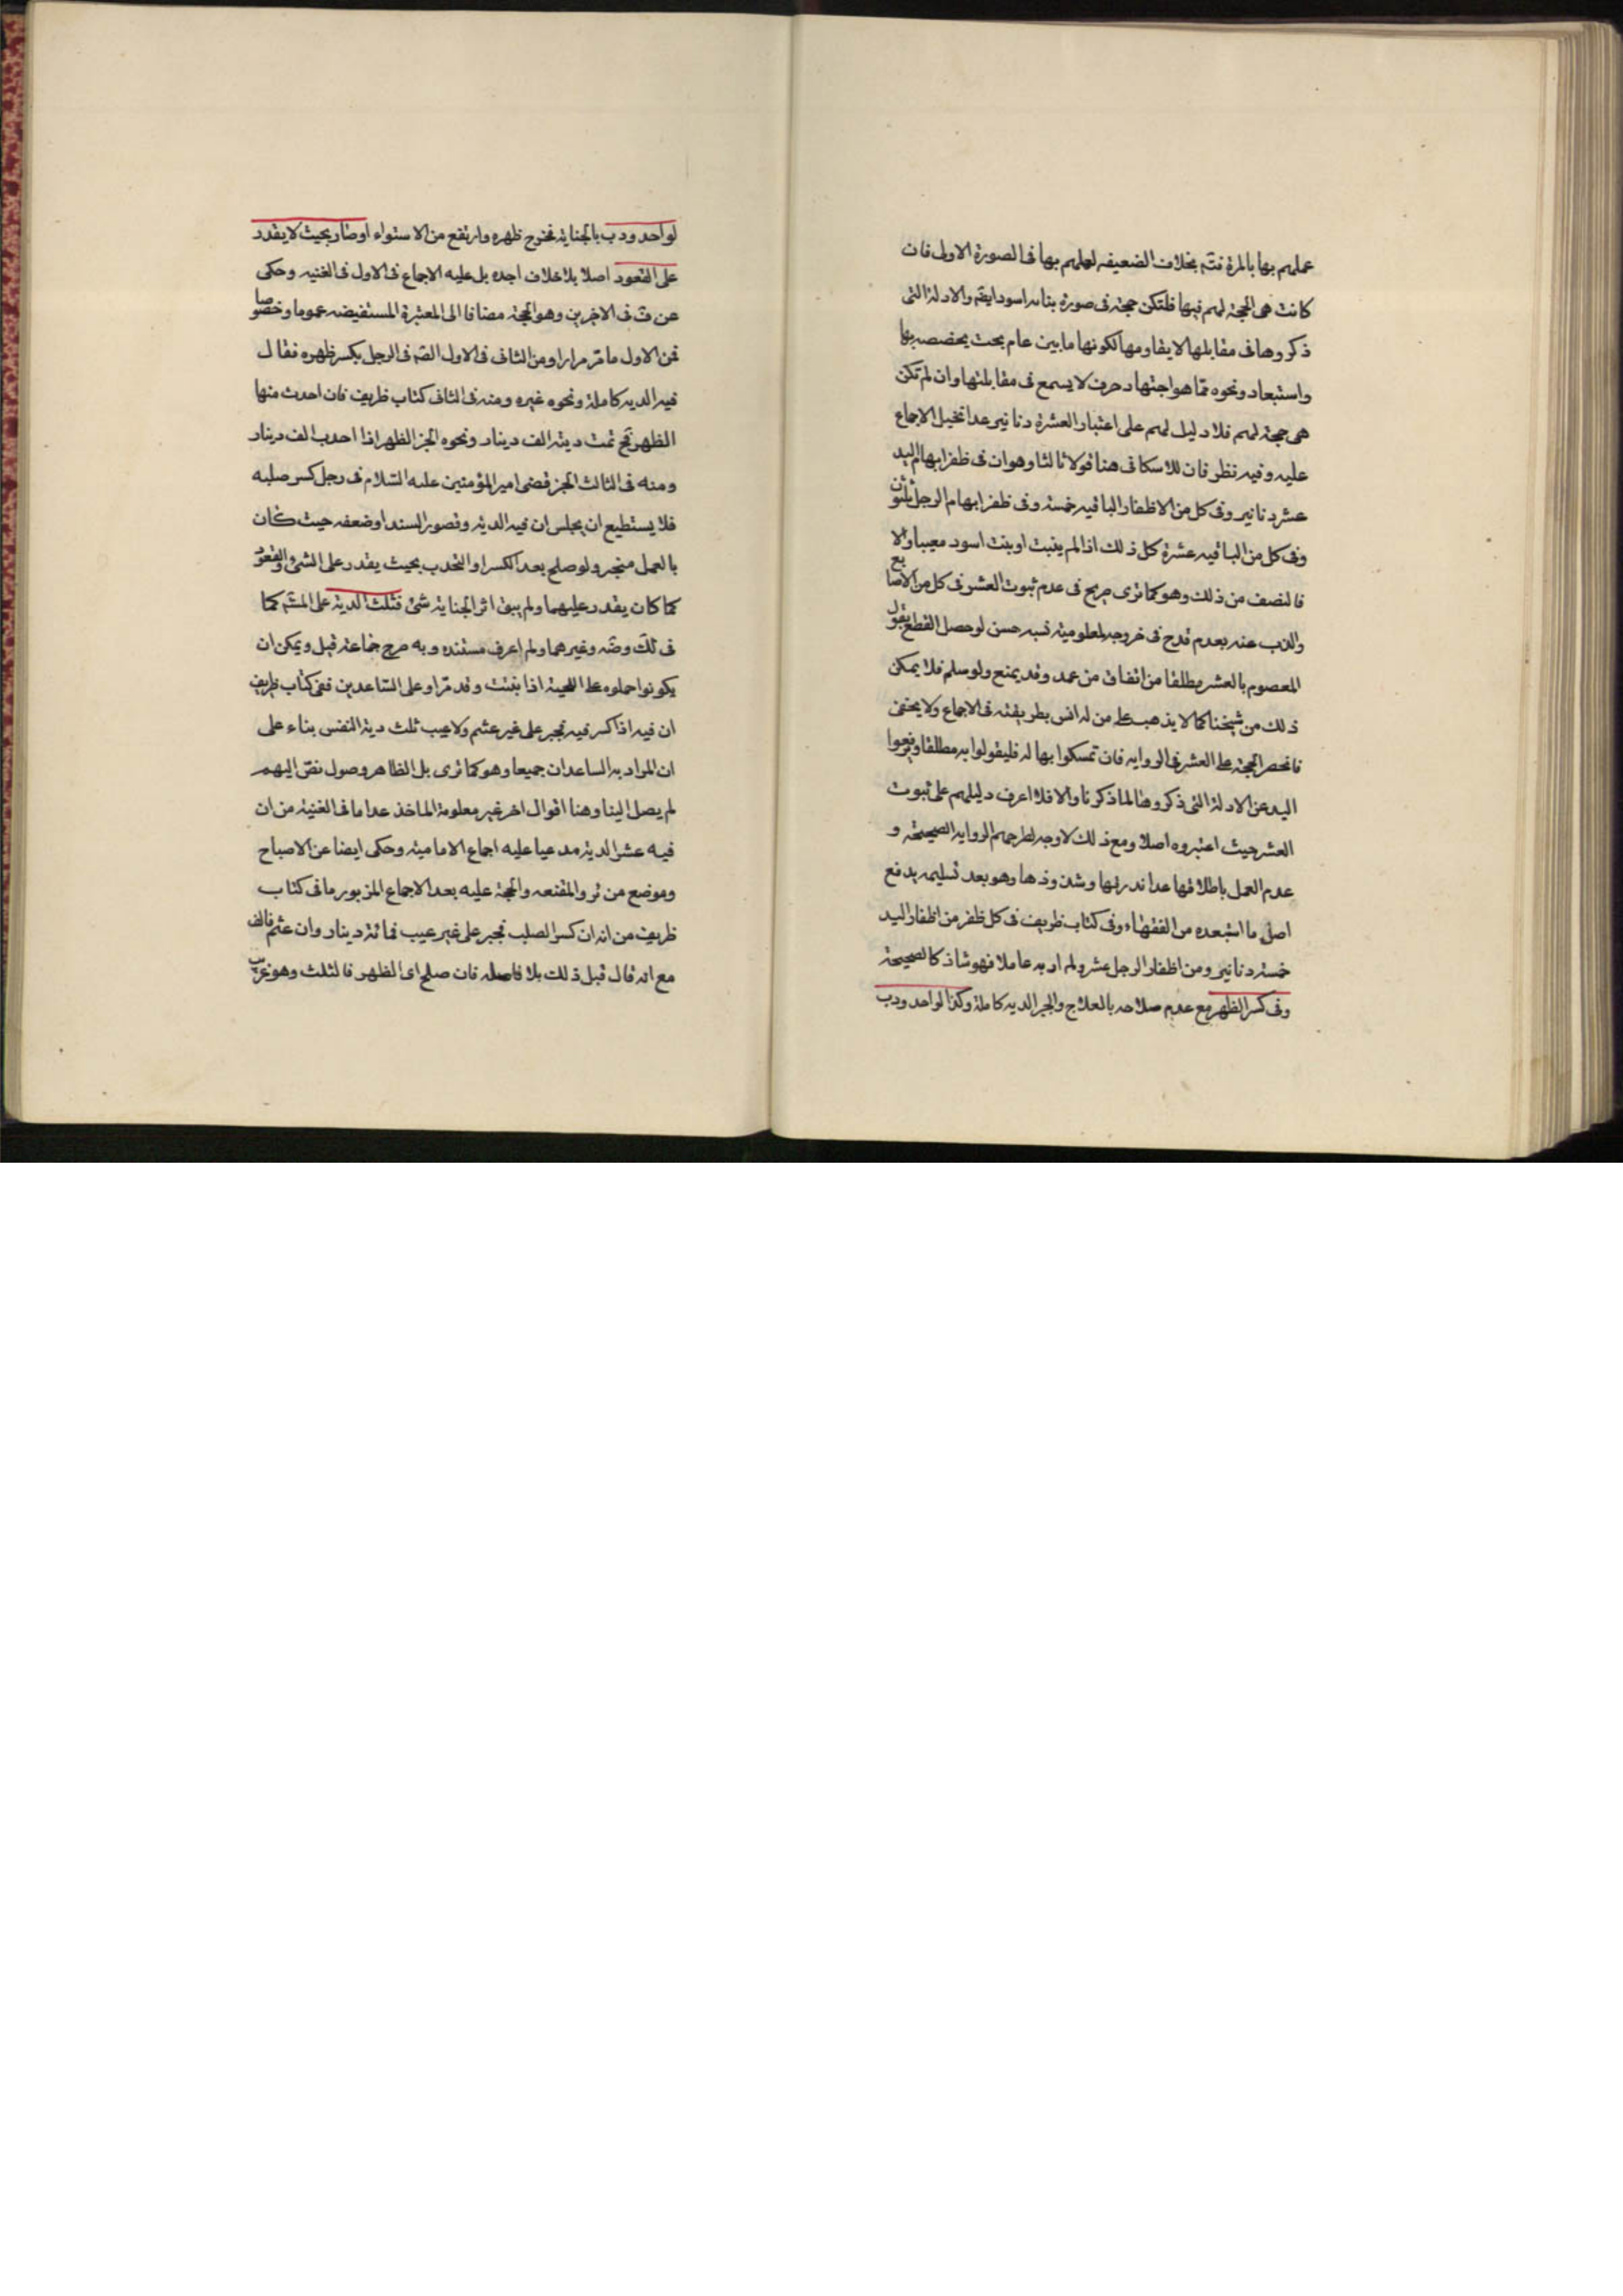 عملهم بها بالمرة فتم بخلاف الضعيفه لعملهم بها فى الصورة الاولى فان
كانت هى الحجة لهم فيها فلتكن حجة فى صورة بناته اسود ايضم والادلة التى
ذكروها فى مقابلها لا يقاومها لكونها ما بين عام بحت يخصصه بها
واستبعاد ونحوه مما هو اجتهاد صرف لا يسمع فى مقابلتها وان لم تكن
هى حجة لهم فلا دليل لهم على اعتبار العشرة دنانير عدا تخيل الاجماع
عليه وفيه نظر فان للاسكافى هنا قولا ثالثا وهو ان فى ظفر ابهام اليد
عشر دنانير وفى كل من الاظفار الباقيه خمسة وفى ظفر ابهام الرجل ثلثون
وفى كل من الباقيه عشرة كل ذلك اذا لم ينبت او بنت اسود معيبا والا
فالنصف من ذلك وهو كما ترى صريح فى عدم ثبوت العشر فى كل من الاصابع
والذب عنه بعدم قدح فى خروجه لمعلومية نسبه حسن لو حصل القطع بقول
المعصوم بالعشر مطلقا من اتفاق من عمد وقد يمنع ولو سلم فلا يمكن
ذلك من شيخنا كما لا يذهب على من له انس بطريقته فى الاجماع ولا يخفى
فانحصر الحجة على العشر فى الروايه فان تمسكوا بها له فليقولوا به مطلقا ويرفعوا
اليد عن الادلة التى ذكروها لما ذكرنا والا فلا اعرف دليلهم على ثبوت
العشر حيث اعتبروه اصلا ومع ذلك لا وجه لطرحهم الروايه الصحيحة و
عدم العمل باطلاقها عدا ندرتها وشذوذها وهو بعد تسليمه يدفع
اصل ما استبعده من الفقهاء وفى كتاب ظريف فى كل ظفر من اظفار اليد
خمسة دنانير ومن اظفار الرجل عشر ولم ار به عاملا فهو شاذ كالصحيحة
وفى كسر الظهر مع عدم صلاحه بالعلاج والجبر الديه كاملة وكذا لو احدودب
لو احدودب بالجناية فخرج ظهره وارتفع من الاستواء او صار بحيث لا يقدر
على القعود اصلا بلا خلاف اجده بل عليه الاجماع فى الاول فى الغنيه وحكى
عن ف فى الاخرين وهو الحجة مضافا الى المعتبرة المستفيضه عموما وخصوصا
فمن الاول ما مر مرارا ومن الثانى فى الاول الصم فى الرجل يكسر ظهره فقال
فيه الديه كاملة ونحوه غيره ومنه فى الثانى كتاب ظريف فان احدث منها
الظهر فح تمت ديته الف دينار ونحوه الخبر الظهر اذا احدب الف دينار
ومنه فى الثالث الخبر قضى امير المؤمنين عليه السلام فى رجل كسر صلبه
فلا يستطيع ان يجلس ان فيه الديه وقصور السند او ضعفه حيث كان
بالعمل منجبر ولو صلح بعد الكسر او التحدب بحيث يقدر على المشى والقعود
كما كان يقدر عليهما ولم يبق اثر الجناية شئ فثلث الدية على المشم كما
فى لك وضه وغيرهما ولم اعرف مستنده وبه صرح جماعة قيل ويمكن ان
يكونوا حملوه على اللحية اذا بنتت وقد مر او على الساعدين ففى كتاب ظريف
ان فيه اذا كسر فيه تجبر على غير عثم ولا عيب ثلث دية النفس بناء على
ان المراد به الساعدان جميعا وهو كما ترى بل الظاهر وصول نص اليهم
لم يصل الينا وهنا اقوال اخر غير معلومة الماخذ عدا ما فى الغنية من ان
فيه عشر الدية مدعيا عليه اجماع الاماميه وحكى ايضا عن الاصباح
وموضع من ئر والمقنعه والحجة عليه بعد الاجماع المزبور ما فى كتاب
ظريف من انه ان كسر الصلب فجبر على غير عيب فمائة دينار وان عثم فالف
مع انه قال قبل ذلك بلا فاصله فان صلح اى الظهر فالثلث وهو غريب